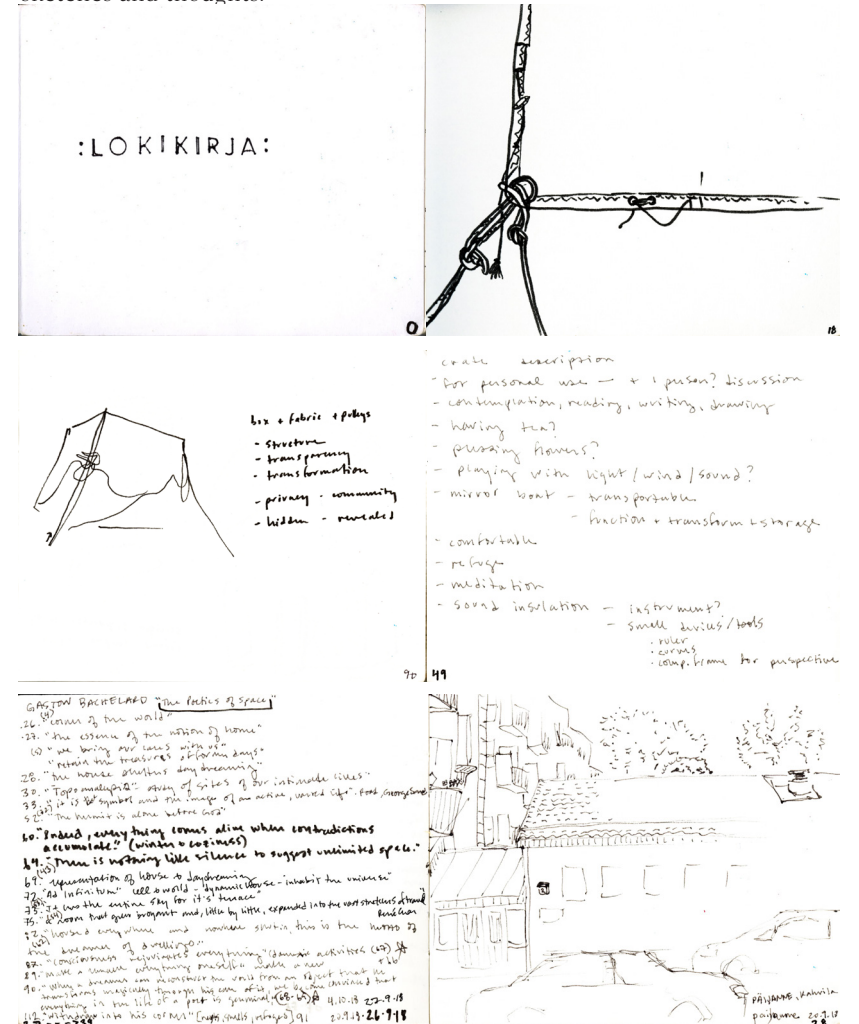 sketches and thoughts.
:LOKIKIRJA:
0
18
box + fabric + pulleys
- structure
- transparency
- transformation
- privacy - community
- hidden - revealed
90
create description
- for personal use — + 1 person? discussion
- contemplation, reading, writing, drawing
- having tea?
- flowers?
- playing with light/wind/sound?
- mirror boat - transportable
- function + transform + storage
- comfortable
- refuge
- meditation
- sound insulation - instrument?
- small devices/tools
· ruler
· curves
· comp. frame for perspective
49
GASTON BACHELARD "The Poetics of Space"
.26. "corner of the world"
.27. "the essence of the notion of home"
"we bring our lares with us"
"retain the treasures of former days"
.28. "the house shelters day dreaming"
30. "Topoanalysis" study of sites of our intimate lives"
33. "it is the symbol and the image of an active, life".
52. "The hermit is alone before God"
60. "Indeed, everything comes alive when contradictions
accumulate." (winter & coziness)
64. "There is nothing like silence to suggest unlimited space."
69. representation of house to daydreaming
72. "Ad Infinitum" cell & world - dynamic house - inhabits the universe"
73. "It has the entire sky for its terrace"
75. "a room that grew buoyant and, little by little, expanded into the vast stretches of travel"
René Char
"housed everywhere and nowhere shut in, this is the motto of
the dreamer of dwellings."
"consciousness rejuvenates everything" (domestic activities (67)
90. "Why a dreamer can reconstruct the world from an object that he
transforms magically through his care of it, we become convinced that
everything in the life of a poet is germinal." (68-69)
4.10.18 27.9.18
112. "withdraws into his corner" [nests, shells, refuges] 91
26.9.18
PÄIJÄNNE, Kahvila
päijänne 20.9.18
28